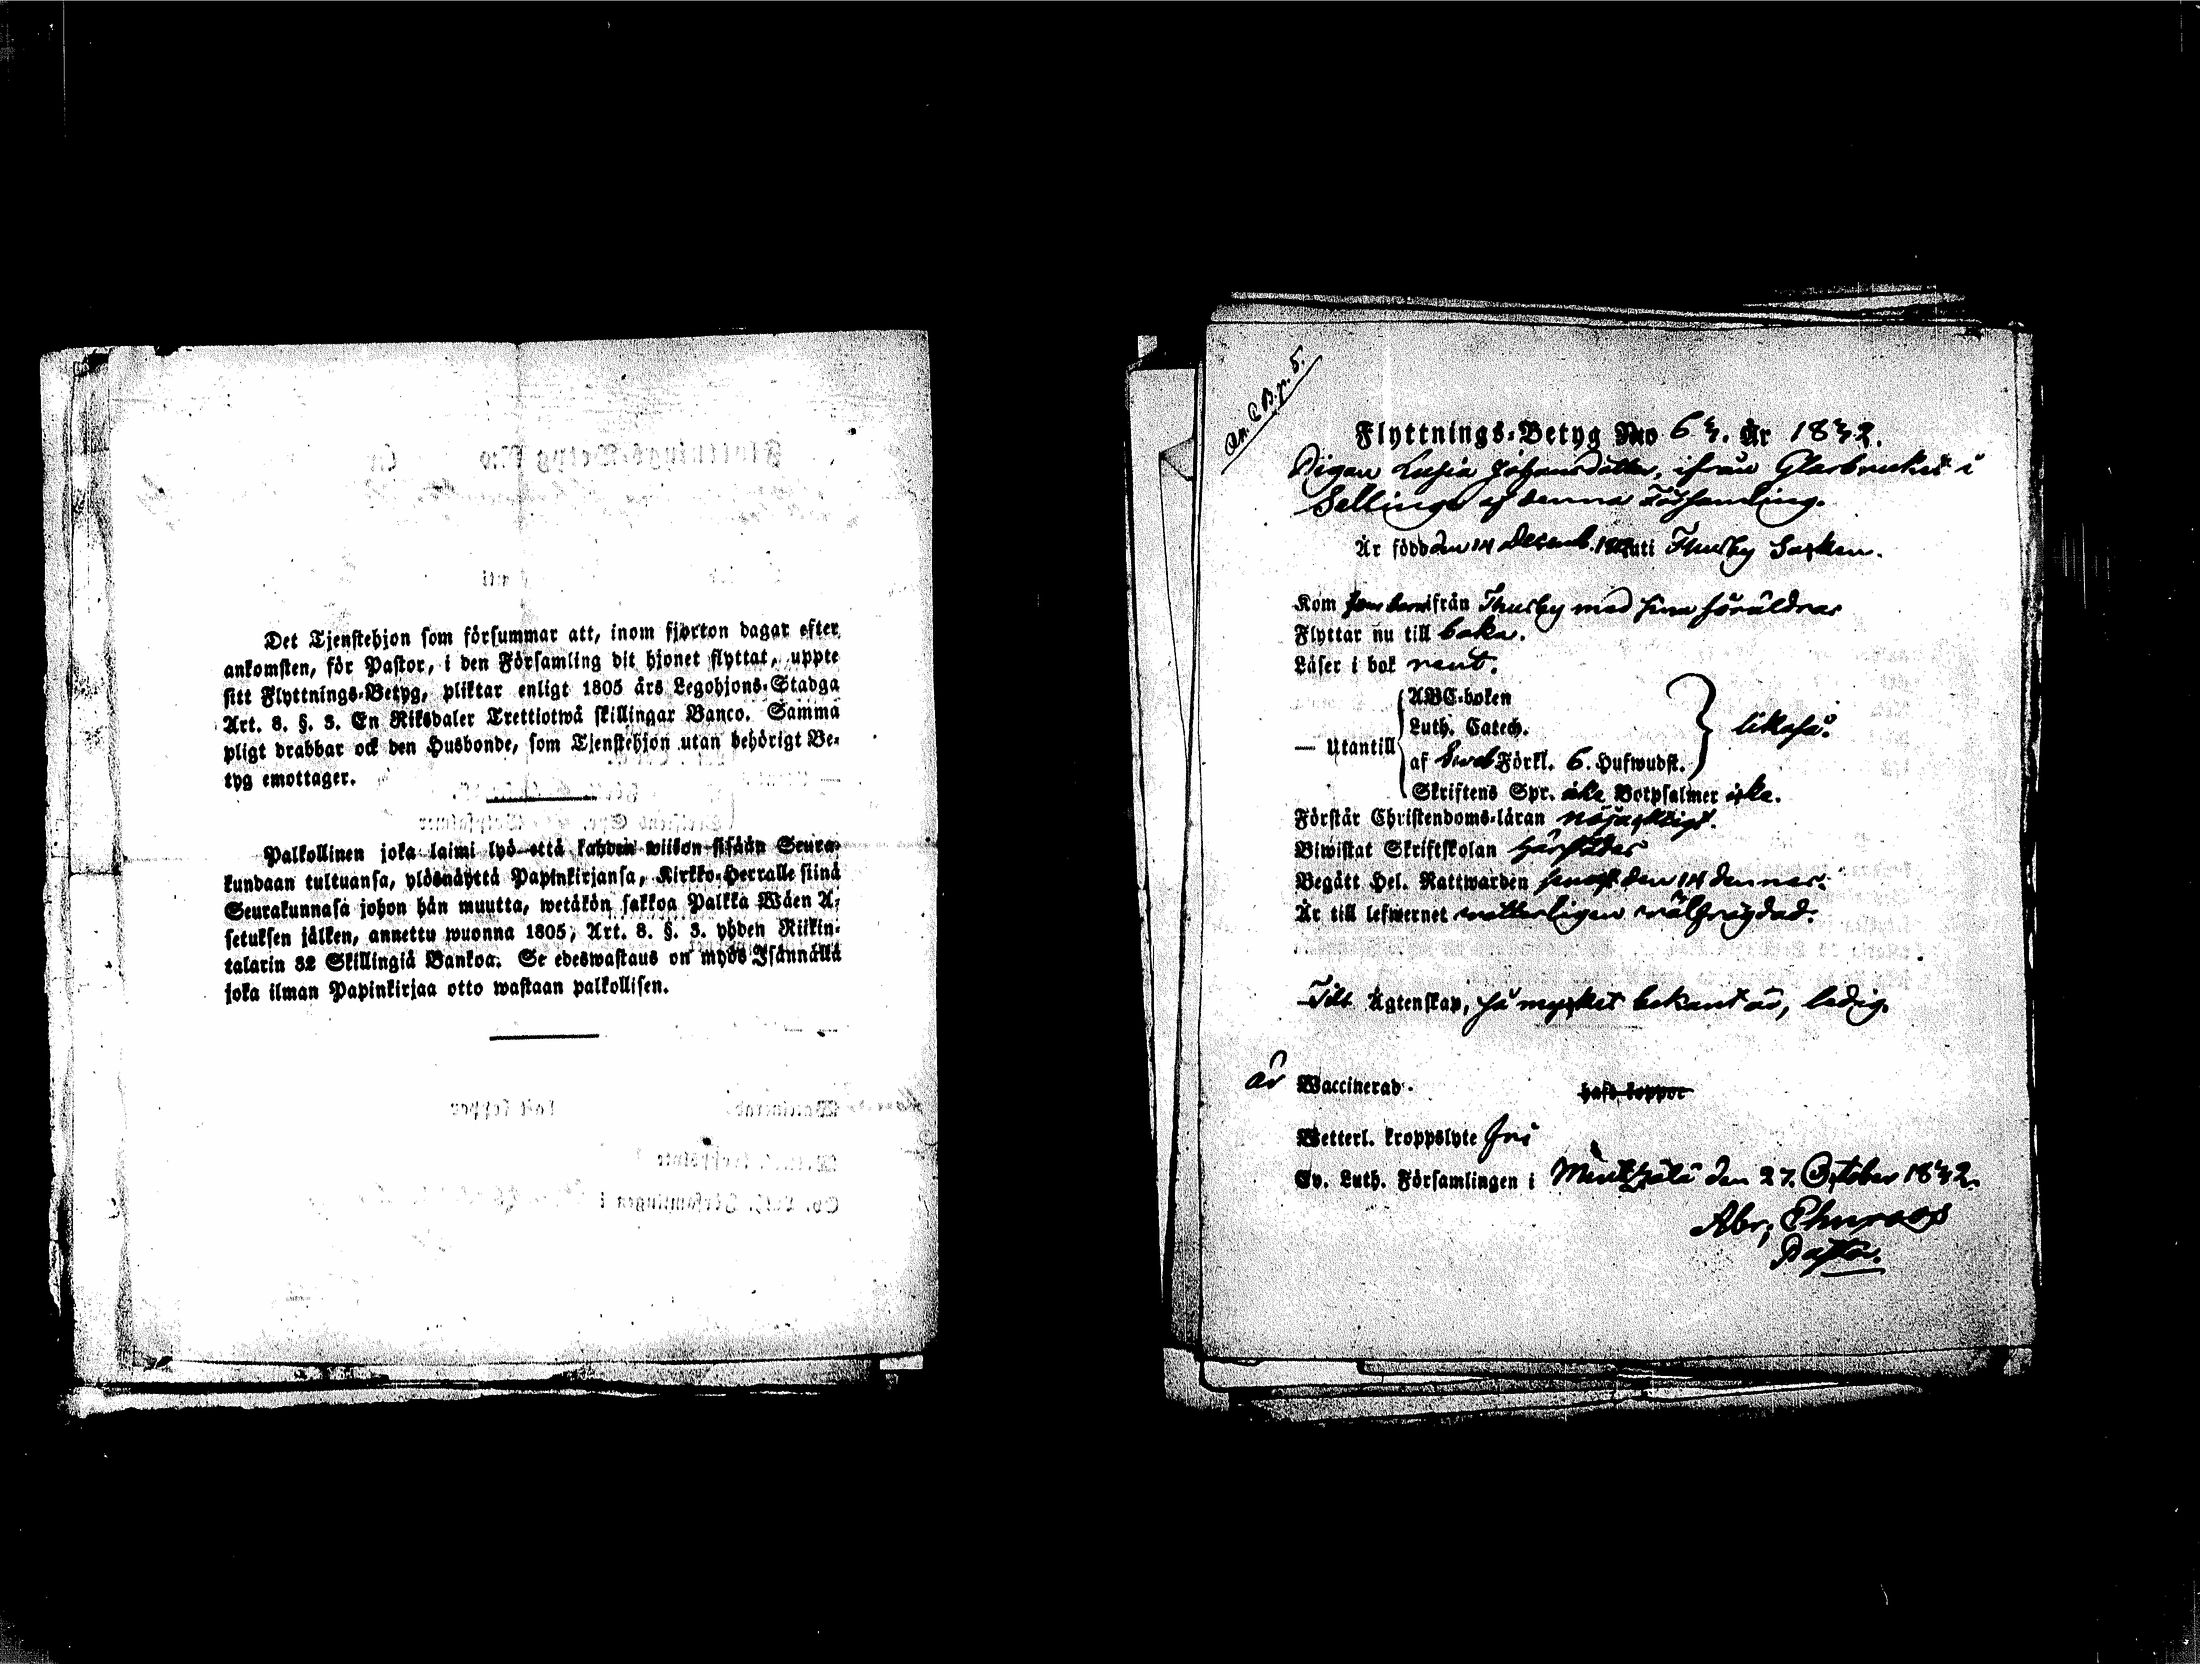 Det Tjenstehjon som försummar att, inom fjorton dagar efter
ankomsten, för Pastor, i den Församling dit hjonet flyttat, uppte
sitt Flyttnings-Betyg, pliktar enligt 1805 års Legohjons-Stadga
Art. 8. §. 3. En Riksdaler Trettiotwå skillingar Banco. Samma
pligt drabbar ock den Husbonde, som Tjenstehjon utan behörigt Be-
tyg emottager.
Palkollinen joka laimi lyö että kahden wiikon sisään Seura-
kundaan tultuansa, ylösnäyttä Papinkirjansa, Kirkko-Herralle siinä
Seurakunnasa johon hän muutta, wetäkön sakkoa Palkka Wäen A-
setuksen jälken, annettu wuonna 1805, Art. 8. §. 3. yhden Riikin-
talarin 32 Skillingiä Bankoa. Se edeswastaus on myös Isännällä
joka ilman Papinkirjaa otto wastaan palkollisen.
An. C B. p. 5.
Flyttnings-Betyg No 64. År 1842.
Pigan Johansdotter, ifrån Glasbruket i
Sellinge af denna Församling.
Är född den 14 Decemb. uti Thusby Socken.
Kom ifrån Thusby med sina föräldrar
Flyttar nu till baka.
Läser i bok rent.
— Utantill
ABC-boken
Luth. Catech.
af Förkl. 6. Hufwudst.
likaså.
Skriftens Spr. icke Botpsalmer icke.
Förstår Christendoms-läran nöjagtligt.
Biwistat Skriftskolan härstädes
Begått Hel. Nattwarden senast den 14 dennes.
Är till lefwernet wälfrägdad.
Till Ägtenskap, så mycket bekant är, ledig.
är Waccinerad. haft koppor
Wetterl. kroppslyte fri
Ev. Luth. Församlingen i Mäntzälä den 27. October 1842.
Abr. Thuraeus
Pastor.